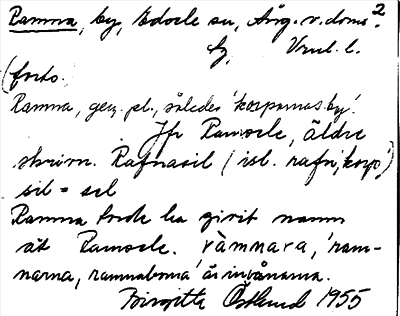 Ramna, by, Edsele sn, Ång. v. doms. 2
by, Vrul. l.
(forts.
Ramna, gen. pl., således 'korparnas by'.
Jfr Ramsele, äldre
skrivn. Rafnasil (isl. rafn, 'korp')
sil = sel
Ramna torde ha givit namn
åt Ramsele. ràmnara, 'ram-
narna, ramnaborna' är invånarna.
Birgitta Östlund 1955